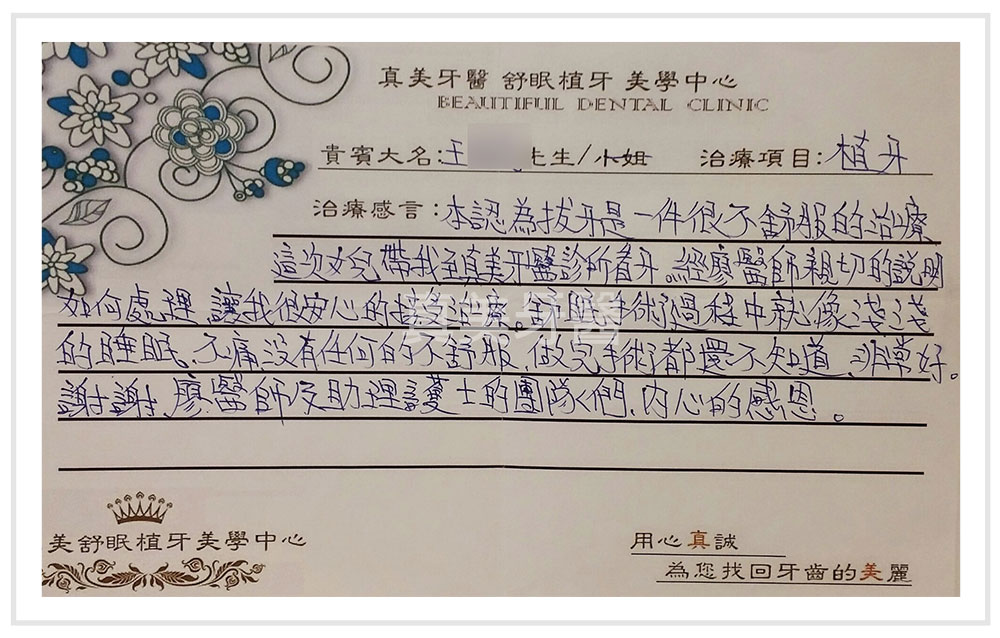 真美牙醫 舒眠植牙 美學中心
BEAUTIFUL DENTAL CLINIC
貴賓大名:王 先生/小姐 治療項目:植牙
治療感言:本認為拔牙是一件很不舒服的治療
這次女兒帶我至真美牙醫診所看牙.經廖醫師親切的說明
如何處理,讓我很安心的接受治療。舒眠手術過程中就像淺淺
的睡眠,不痛沒有任何的不舒服,做完手術都還不知道,非常好。
謝謝,廖醫師及助理護士的團隊们們,內心的感恩。
真美牙醫
美舒眠植牙美學中心
用心真誠
為您找回牙齒的美麗